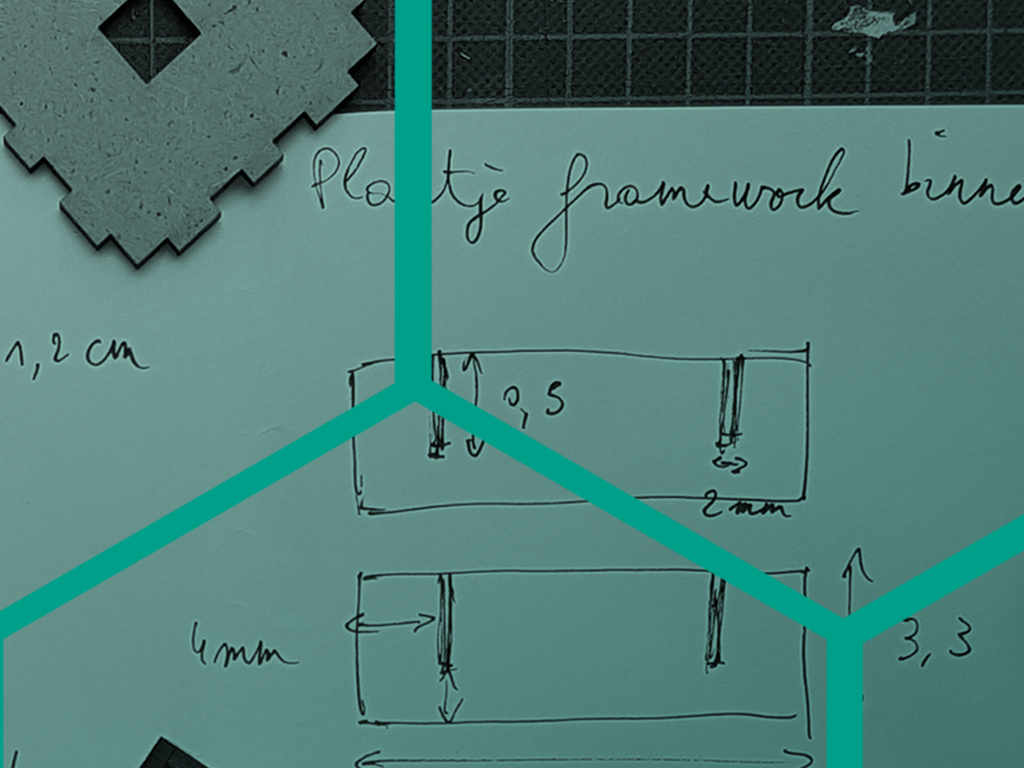 Plaatje framework binne
1,2 cm
0,5
2 mm
4 mm
3,3